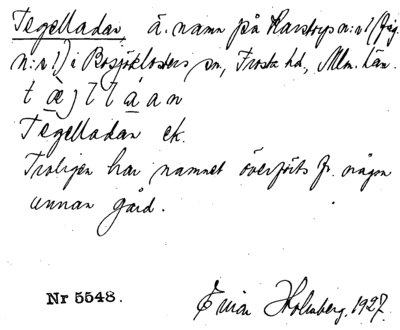 Tegelladan, ä. namn på Karstorps n:r 1 (Jäg.
n:r 1) i Bosjöklosters sn, Frosta hd, Mlm. län.
t æ̀ j l l á a n
Tegelladan ek.
Troligen har namnet överförts fr. någon
annan gård.
Nr 5548.
Holmberg. 1927.